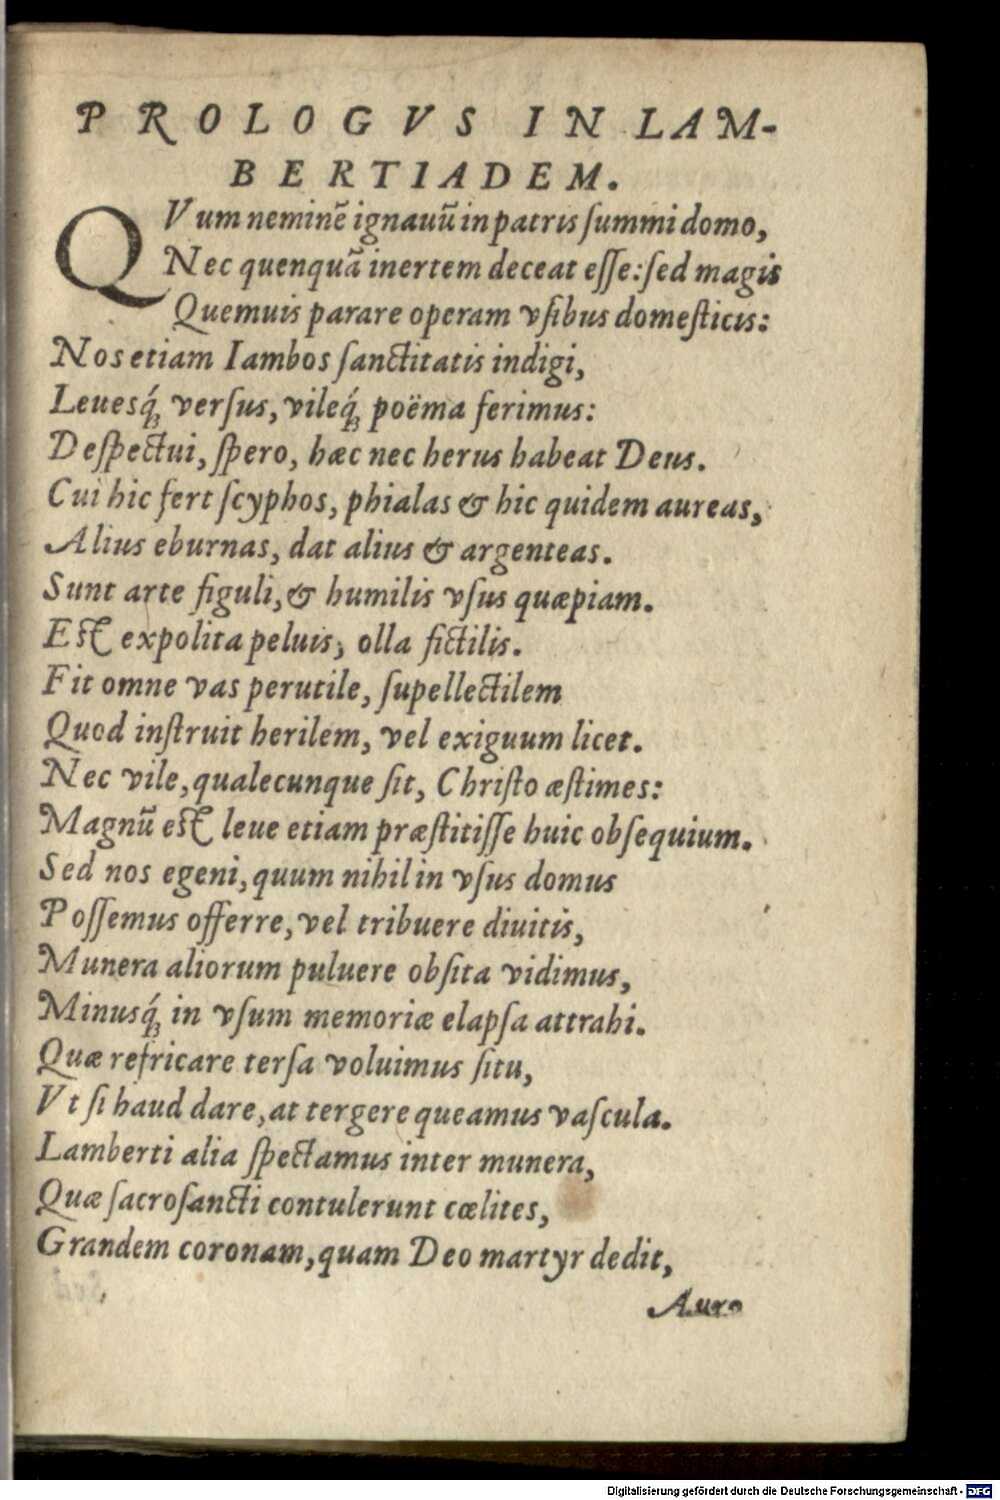 PROLOGVS IN LAM-
BERTIADEM.
QVum neminē ignauū in patris ſummi domo,
Nec quenquā inertem deceat eſſe: ſed magis
Quemuis parare operam vſibus domeſticis:
Nos etiam Iambos ſanctitatis indigi,
Leuesq́ꝫ verſus, vileq́ꝫ poëma ferimus:
Deſpectui, ſpero, hæc nec herus habeat Deus.
Cui hic fert ſcyphos, phialas & hic quidem aureas,
Alius eburnas, dat alius & argenteas.
Sunt arte figuli, & humilis vſus quæpiam.
Eſt expolita peluis, olla fictilis.
Fit omne vas perutile, ſupellectilem
Quod inſtruit herilem, vel exiguum licet.
Nec vile, qualecunque ſit, Chriſto æſtimes:
Magnū eſt leue etiam præſtitiſſe huic obſequium.
Sed nos egeni, quum nihil in vſus domus
Poſſemus offerre, vel tribuere diuitis,
Munera aliorum puluere obſita vidimus,
Minusq́ꝫ in vſum memoriæ elapſa attrahi.
Quæ refricare terſa voluimus ſitu,
Vt ſi haud dare, at tergere queamus vaſcula.
Lamberti alia ſpectamus inter munera,
Quæ ſacroſancti contulerunt cœlites,
Grandem coronam, quam Deo martyr dedit,
Auro
Digitalisierung gefördert durch die Deutsche Forschungsgemeinschaft - DFG